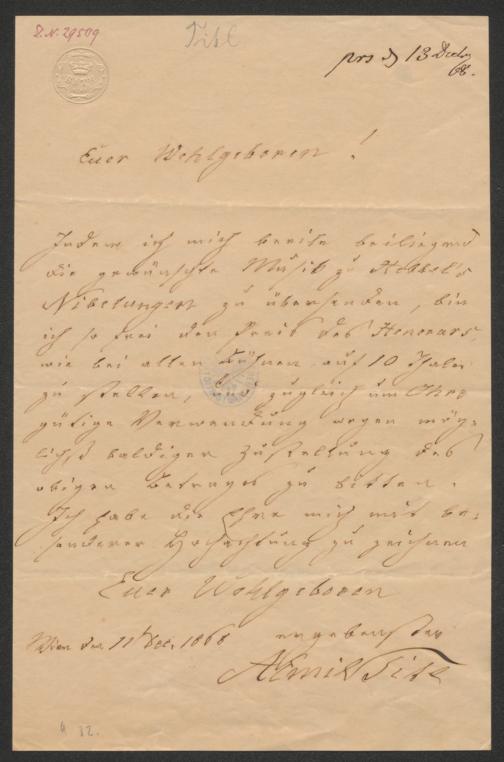 I.N. 29509
Titl
prs d 13 Decbr
68.
Euer Wohlgeboren!
Indem ich mich beeile beiliegend
die gewünschte Musik zu Hebbel's
Nibelungen zu übersenden, bin
ich so frei den Preis des Honorars,
wie bei allen Bühnen auf 10 Thaler
zu stellen, und zugleich um Ihre
gütige Verwendung wegen mög-
lichst baldiger Zustellung des
obigen Betrages zu bitten.
Ich habe die Ehre mich mit be-
sonderer Hochachtung zu zeichnen
Euer Wohlgeboren
ergebenster
Wien den 11 Dec. 1868
A Emil Titl